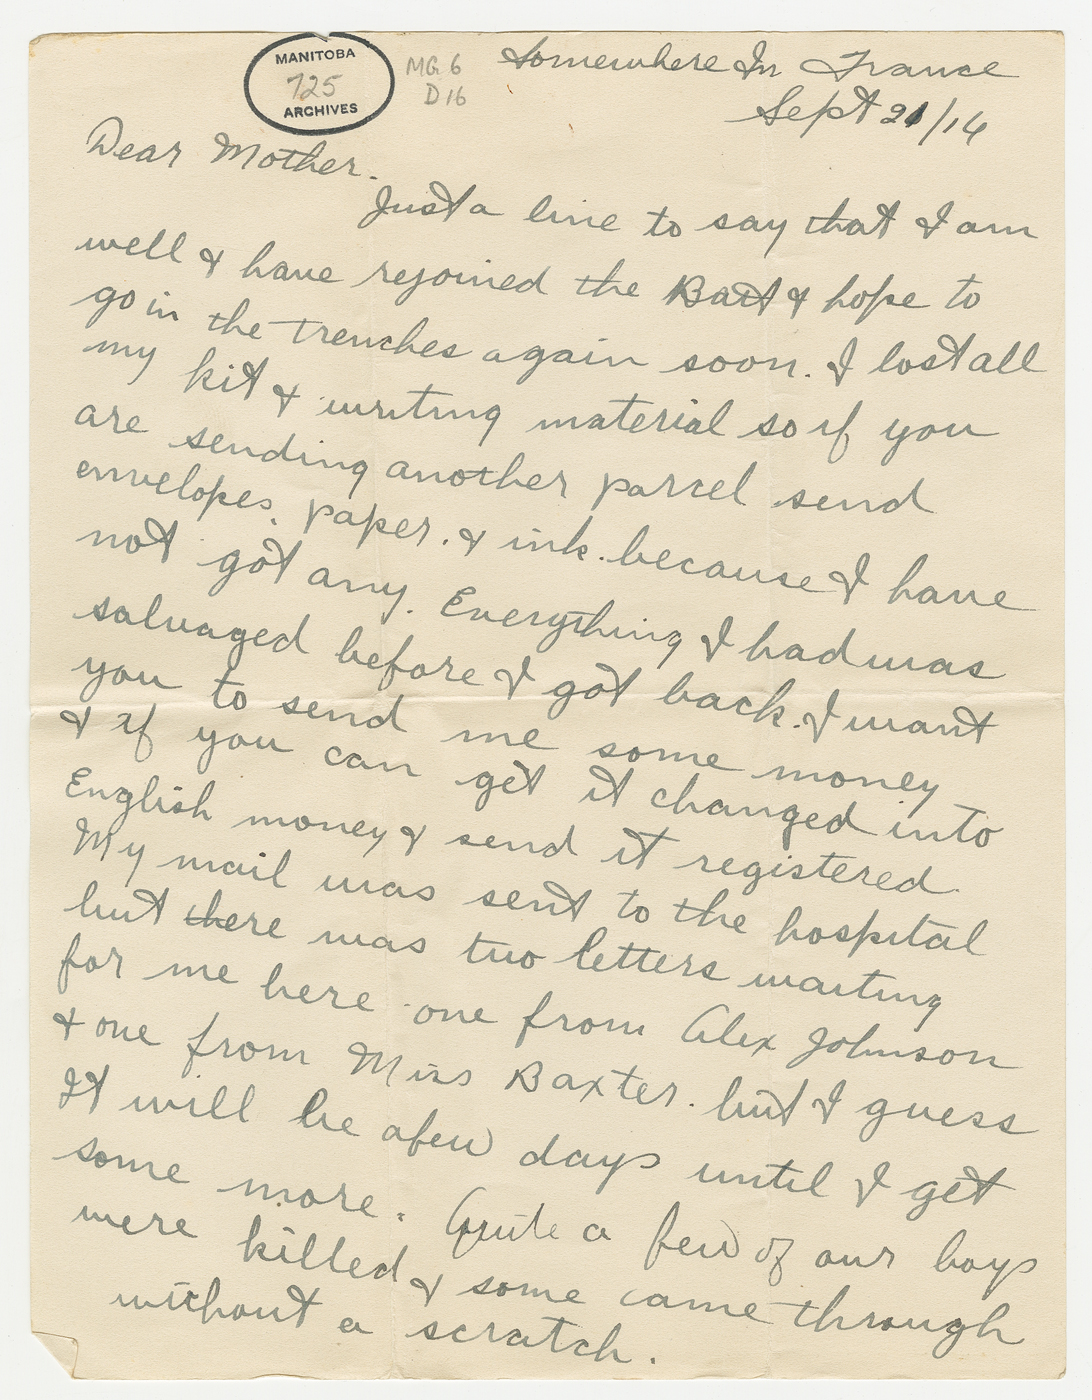 MANITOBA
725
ARCHIVES
MG 6
D 16
Somewhere In France
Sept 21/16
Dear Mother.
Just a line to say that I am
well & have rejoined the Batt & hope to
go in the trenches again soon. I lost all
my kit & writing material so if you
are sending another parcel send
envelopes, paper, & ink. because I have
not got any. Everything I had was
salvaged before I got back. I want
you to send me some money
& if you can get it changed into
English money & send it registered.
My mail was sent to the hospital
but there was two letters waiting
for me here one from Alex Johnson
& one from Miss Baxter. but I guess
It will be a few days until I get
some more. Quite a few of our boys
were killed & some came through
without a scratch.